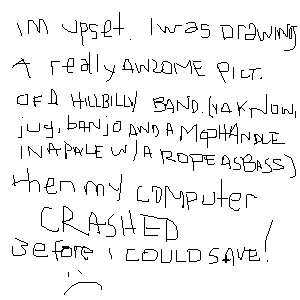 im upset. I was DRAWING
A really AWZOME PICT.
OF A HILLBILLY BAND. (YA KNOW,
jug, banjo AND A MOPHANDLE
IN A PALE W/ A ROPE AS BASS)
then my COMPUTER
CRASHED
Before i COULD SAVE!
:(